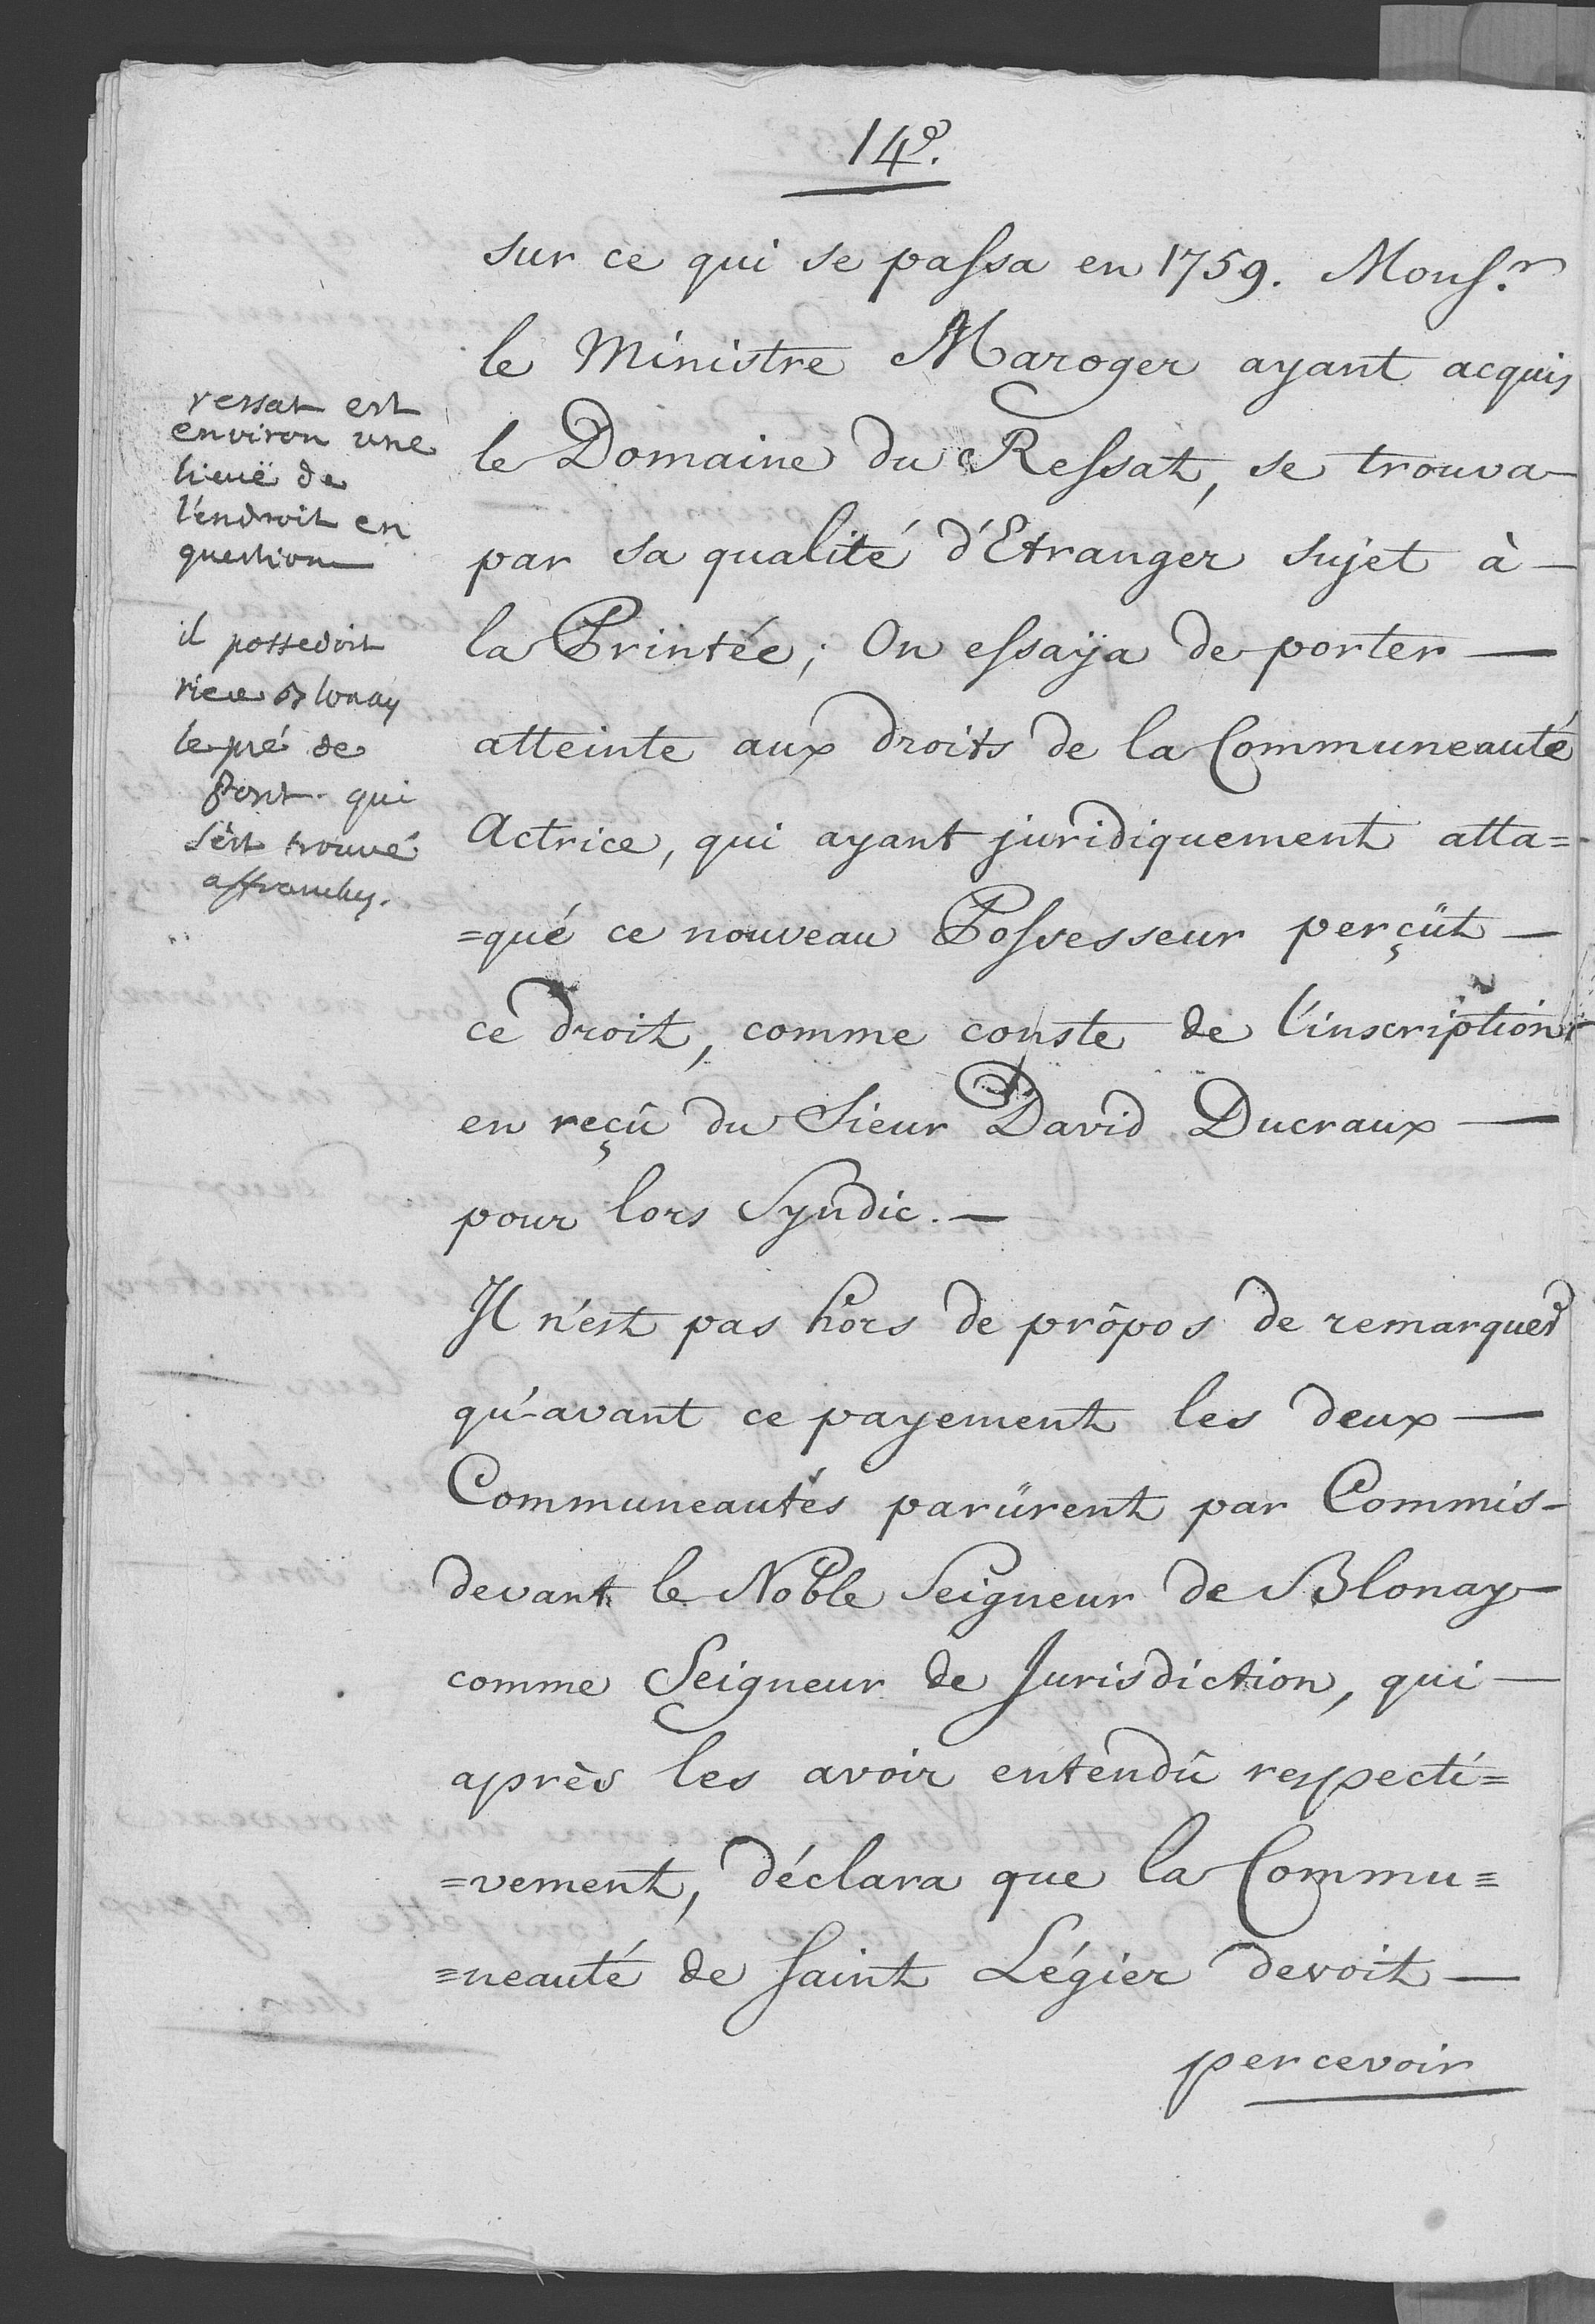 14e.
sur ce qui se passa en 1759. Mons.r
le Ministre Maroger ayant acquis
le Domaine du Ressat, se trouva
par sa qualité d'Etranger sujet à
la Printée; On essaÿa de porter
atteinte aux droits de la Communeauté
Actrice, qui ayant juridiquement atta=
=qué ce nouveau Possesseur perçüt
ce droit, comme conste de l'inscription
en reçû du Sieur David Ducraux
pour lors Syndic.
Il n'est pas hors de prôpos de remarquer
qu'avant ce payement les deux
Communeautés parürent par Commis
devant le Noble Seigneur de Blonay
comme Seigneur de Jurisdiction, qui
après les avoir entendû respecti=
=vement, déclara que la Commu=
=neauté de Saint Légier devoit
percevoir
ressat est
environ une
lieuë de
l'endroit en
question
il possedoit
rière blonay
le pré de
Pont qui
s'est trouvé
affranchy.